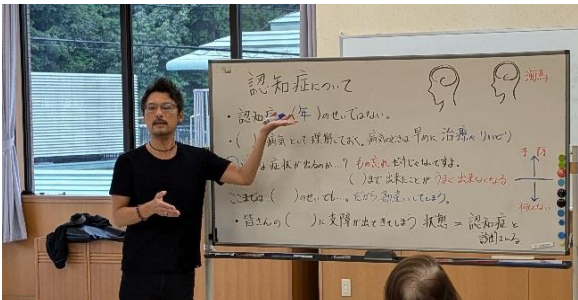 認知症について
海馬
・認知症 (年)のせいではない。
・( )病気として理解しておく。病気のときは早めに治療やリハビリ
な症状が出るのか…? もの忘れだけじゃないですよ。
( )まで出来たことがうまく出来なくなる
ここまでは( )のせいでも…。だから勘違いしてしまう。
・皆さんの( )に支障が出てきてしまう状態=認知症と
診断される
予防